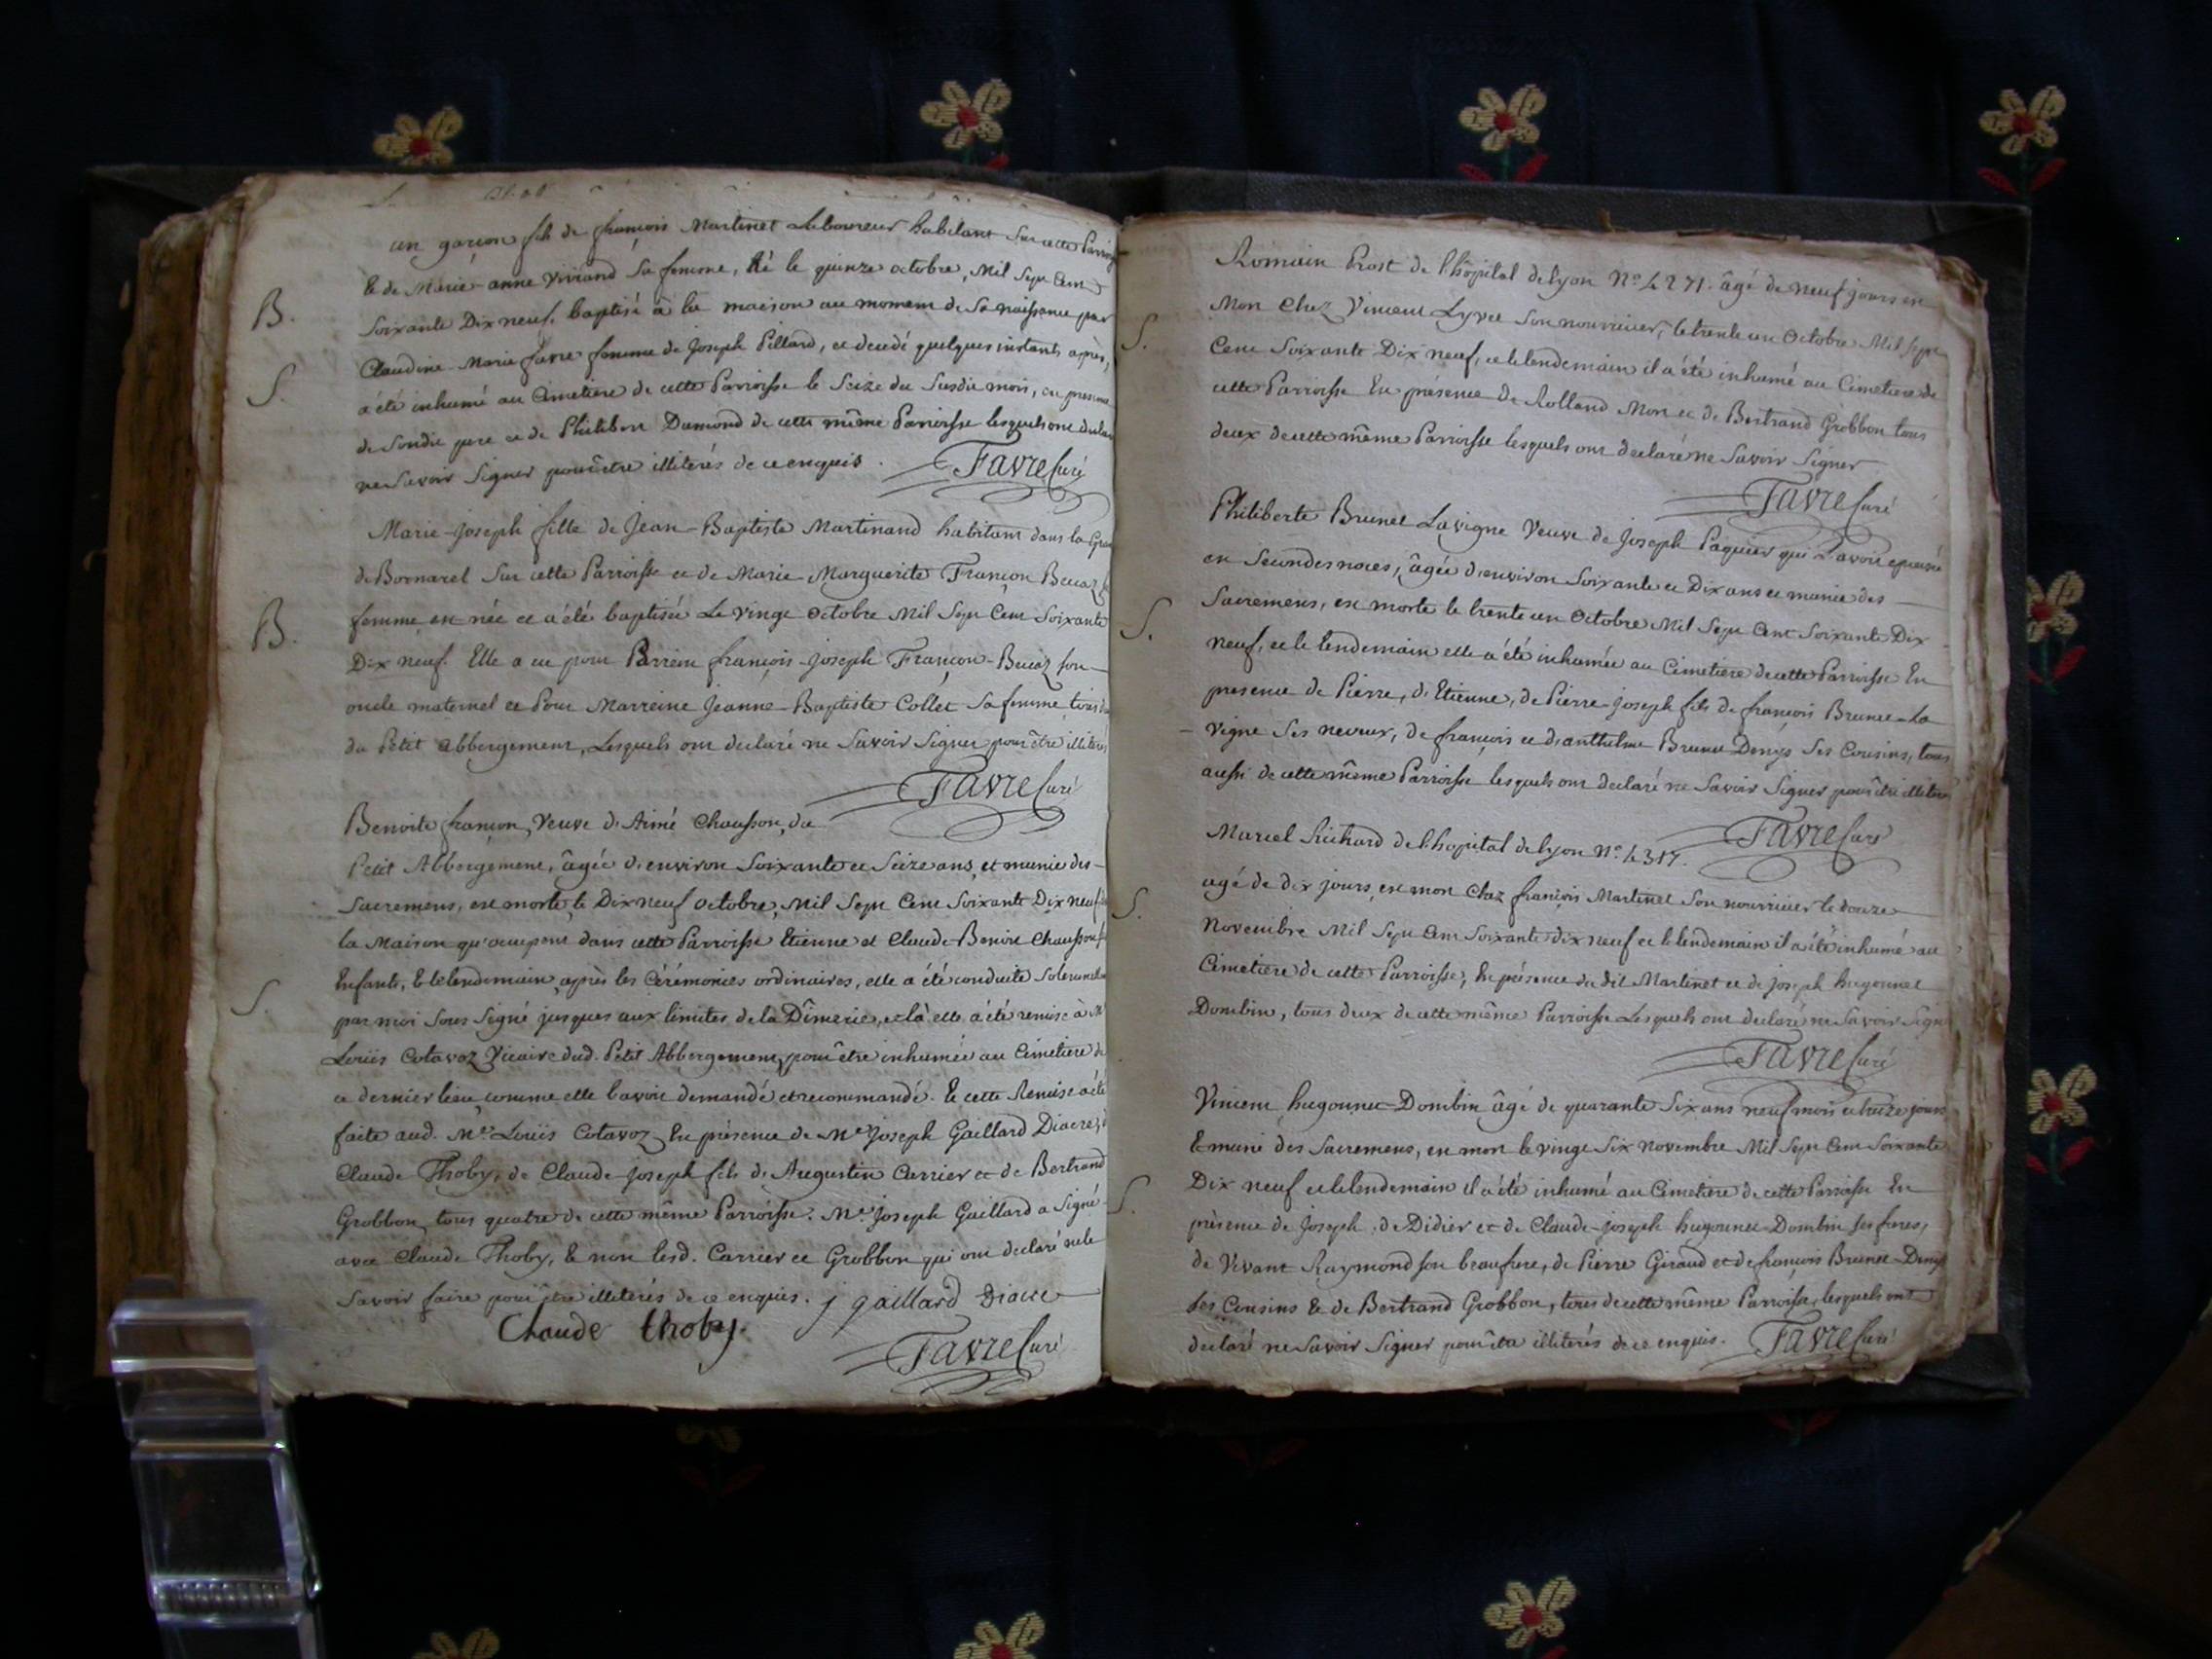 un garçon fils de françois Martinet Laboureur habitant sur cette Parroi
& de Marie-anne Viviand sa femme, Né le quinze octobre, Mil Sept Cent
B.
Soixante Dix neuf. baptisé à la maison au moment de sa naissance par
Claudine Marie favre femme de Joseph Pillard, et decedé quelques instants après,
S.
a été inhumé au Cimetiere de cette Parroisse le Seize du Susdit mois, en presence
de Sondit pere et de Philibert Dumond de cette même Parroisse lesquels ont declaré
ne Savoir Signer pour être illiterés de ce enquis. Favre Curé
Marie-Joseph fille de Jean-Baptiste Martinand habitant dans la
de Bornarel Sur cette Parroisse et de Marie-Marguerite Françon Bucaz
B.
femme est née et a été baptisée Le vingt Octobre Mil Sept Cent Soixante
Dix neuf. Elle a eu pour Parrein françois-Joseph Françon-Bucaz son
oncle maternel et Pour Marreine Jeanne-Baptiste Collet Sa femme, tous
du Petit Abbergement, Lesquels ont declaré ne Savoir Signer pour être illiterés
Favre Curé
Benoite françon, Veuve d'Aimé Chausson, du
Petit Abbergement, âgée d'environ Soixante et Seize ans, et munie des
Sacremens, est morte le Dix neuf octobre, Mil Sept Cent Soixante Dix neuf
la Maison qu'occupent dans cette Parroisse Etienne et Claude-Benoit Chausson
S.
Enfants, & le lendemain, après les Cérémonies ordinaires, elle a été conduite Solennellem
par moi Sous Signé jusques aux limites de la Dîmerie, et là elle a été remise à Mr
Loüis Cotavoz Vicaire dud. Petit Abbergement, pour être inhumée au Cimetiere de
ce dernier lieu, comme elle l'avoit demandé et recommandé. Et cette Remise a été
faite aud. Me. Loüis Cotavoz En présence de Me. Joseph Gaillard Diacre, de
Claude Thoby, de Claude-Joseph fils d'Augustin Carrier et de Bertrand
Grobbon, tous quatre de cette même Parroisse. Me. Joseph Gaillard a Signé
avec Claude Thoby, & non lesd. Carrier et Grobbon qui ont declaré ne le
Savoir faire pour être illiterés de ce enquis. j gaillard Diacre
Claude thoby.
Favre Curé
Romain Prost de l'hôpital de Lyon No. 4271. âgé de neuf jours est
Mort Chez Vincent Lyvet Son nourricier, le trente un Octobre Mil Sept
S.
Cent Soixante Dix neuf, et le lendemain il a été inhumé au Cimetiere de
cette Parroisse En présence de Rolland Mort et de Bertrand Grobbon tous
deux de cette même Parroisse lesquels ont declaré ne Savoir Signer
Favre Curé
Philiberte Brunet Lavigne Veuve de Joseph Paquier qui l'avoit epousée
en Secondes noces, âgée d'environ Soixante et Dix ans et munie des
S.
Sacremens, est morte le trente un Octobre Mil Sept Cent Soixante Dix
neuf, et le lendemain elle a été inhumée au Cimetiere de cette Parroisse En
presence de Pierre, d'Etienne, de Pierre-Joseph fils de françois Brunet-La
vigne Ses neveux, de françois et d'anthelme Brunet Denys Ses Cousins, tous
aussi de cette même Parroisse lesquels ont declaré ne Savoir Signer pour être illiterés
Favre Curé
Marcel Richard de l'hopital de Lyon No. 4317.
S.
agé de dix jours, est mort Chez françois Martinet Son nourricier le douze
Novembre Mil Sept Cent Soixante dix neuf et le lendemain il a été inhumé au
Cimetiere de cette Parroisse, En présence du dit Martinet et de joseph hugonnet
Dombin, tous deux de cette même Parroisse Lesquels ont declaré ne Savoir Signer
Favre Curé
Vincent hugonnet-Dombin âgé de quarante Six ans neuf mois et treize jours
& muni des Sacremens, est mort le vingt Six Novembre Mil Sept Cent Soixante
S.
Dix neuf et le lendemain il a été inhumé au Cimetiere de cette Parroisse En
présence de Joseph, de Didier et de Claude-joseph hugonnet-Dombin ses freres,
de Vivant Raymond son beaufrere, de Pierre Giraud et de françois Brunet-Denys
Ses Cousins & de Bertrand Grobbon, tous de cette même Parroisse, lesquels ont
declaré ne Savoir Signer pour être illiterés de ce enquis. Favre Curé